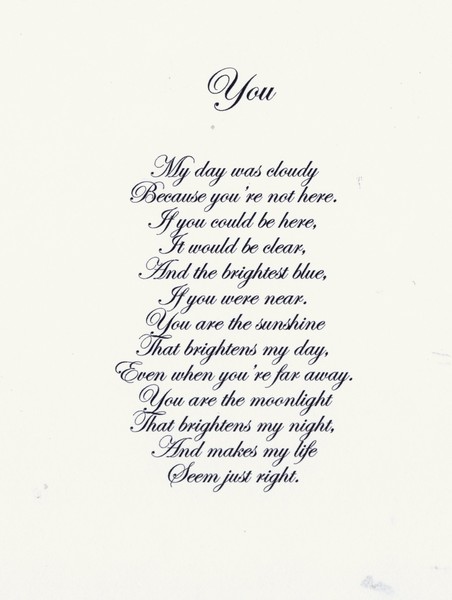 You
My day was cloudy
Because you're not here.
If you could be here,
It would be clear,
And the brightest blue,
If you were near.
You are the sunshine
That brightens my day,
Even when you're far away.
You are the moonlight
That brightens my night,
And makes my life
Seem just right.